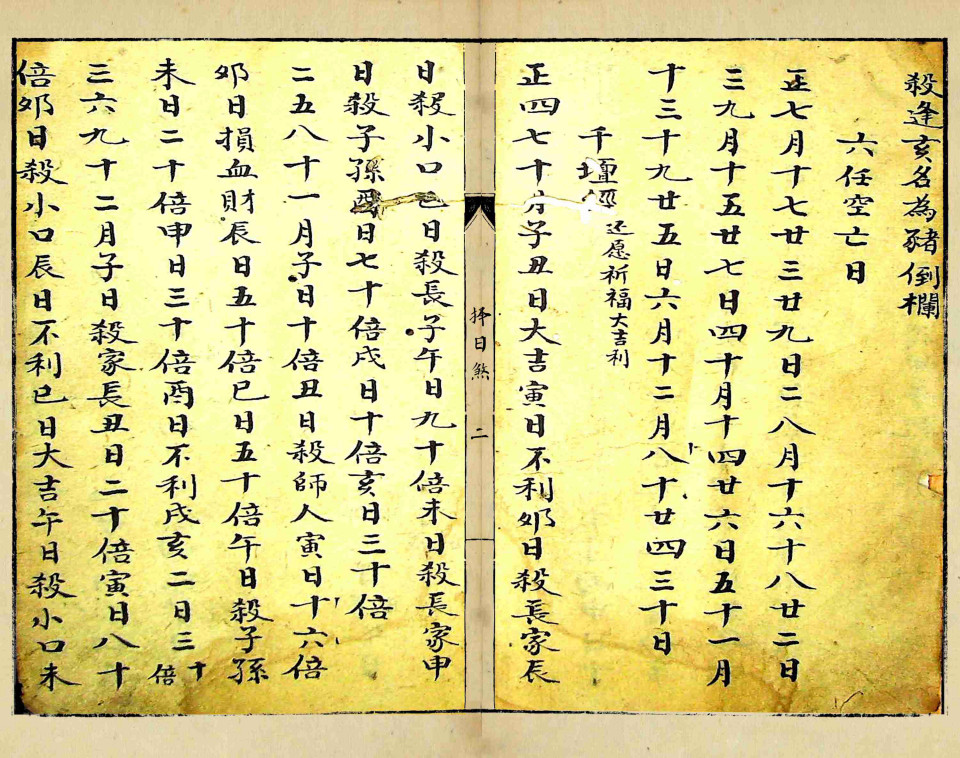 殺逢亥名為豬倒欄
六任空亡日
正七月十七廿三廿九日二八月十六十八廿二日
三九月十五廿七日四十月十四廿六日五十一月
十三十九廿五日六月十二月八十廿四三十日
千壇經
还愿祈福大吉利
正四七十月子丑日大吉寅日不利夘日殺長家辰
擇日煞
二
日殺小口巳日殺長子午日九十倍未日殺長家申
日殺子孫酉日七十倍戌日十倍亥日三十倍
二五八十一月子日十倍丑日殺師人寅日十六倍
夘日損血財辰日五十倍巳日五十倍午日殺子孫
未日二十倍申日三十倍酉日不利戌亥二日三十倍
三六九十二月子日殺家長丑日二十倍寅日八十
倍夘日殺小口辰日不利巳日大吉午日殺小口未